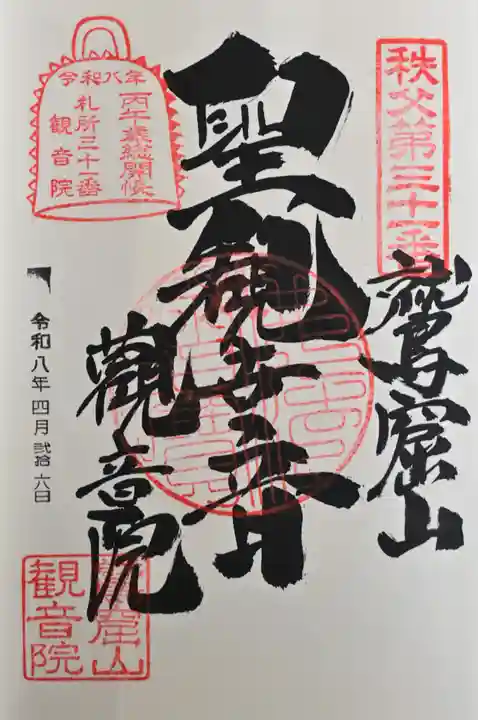 秩父第三十一番
鷲窟山
聖観世音
觀音院
令和八年
丙午歳総開帳
札所三十一番
観音院
令和八年四月弐拾六日
鷲窟山
観音院